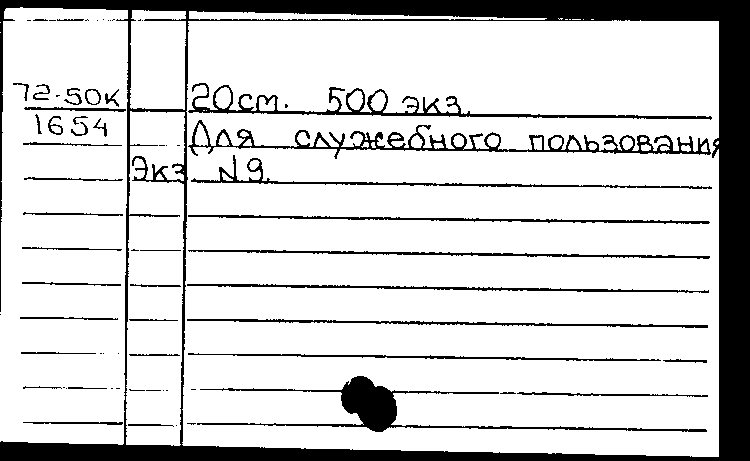 72-50к 20см. 500 экз.
1654 Для служебного пользования
Экз N9.